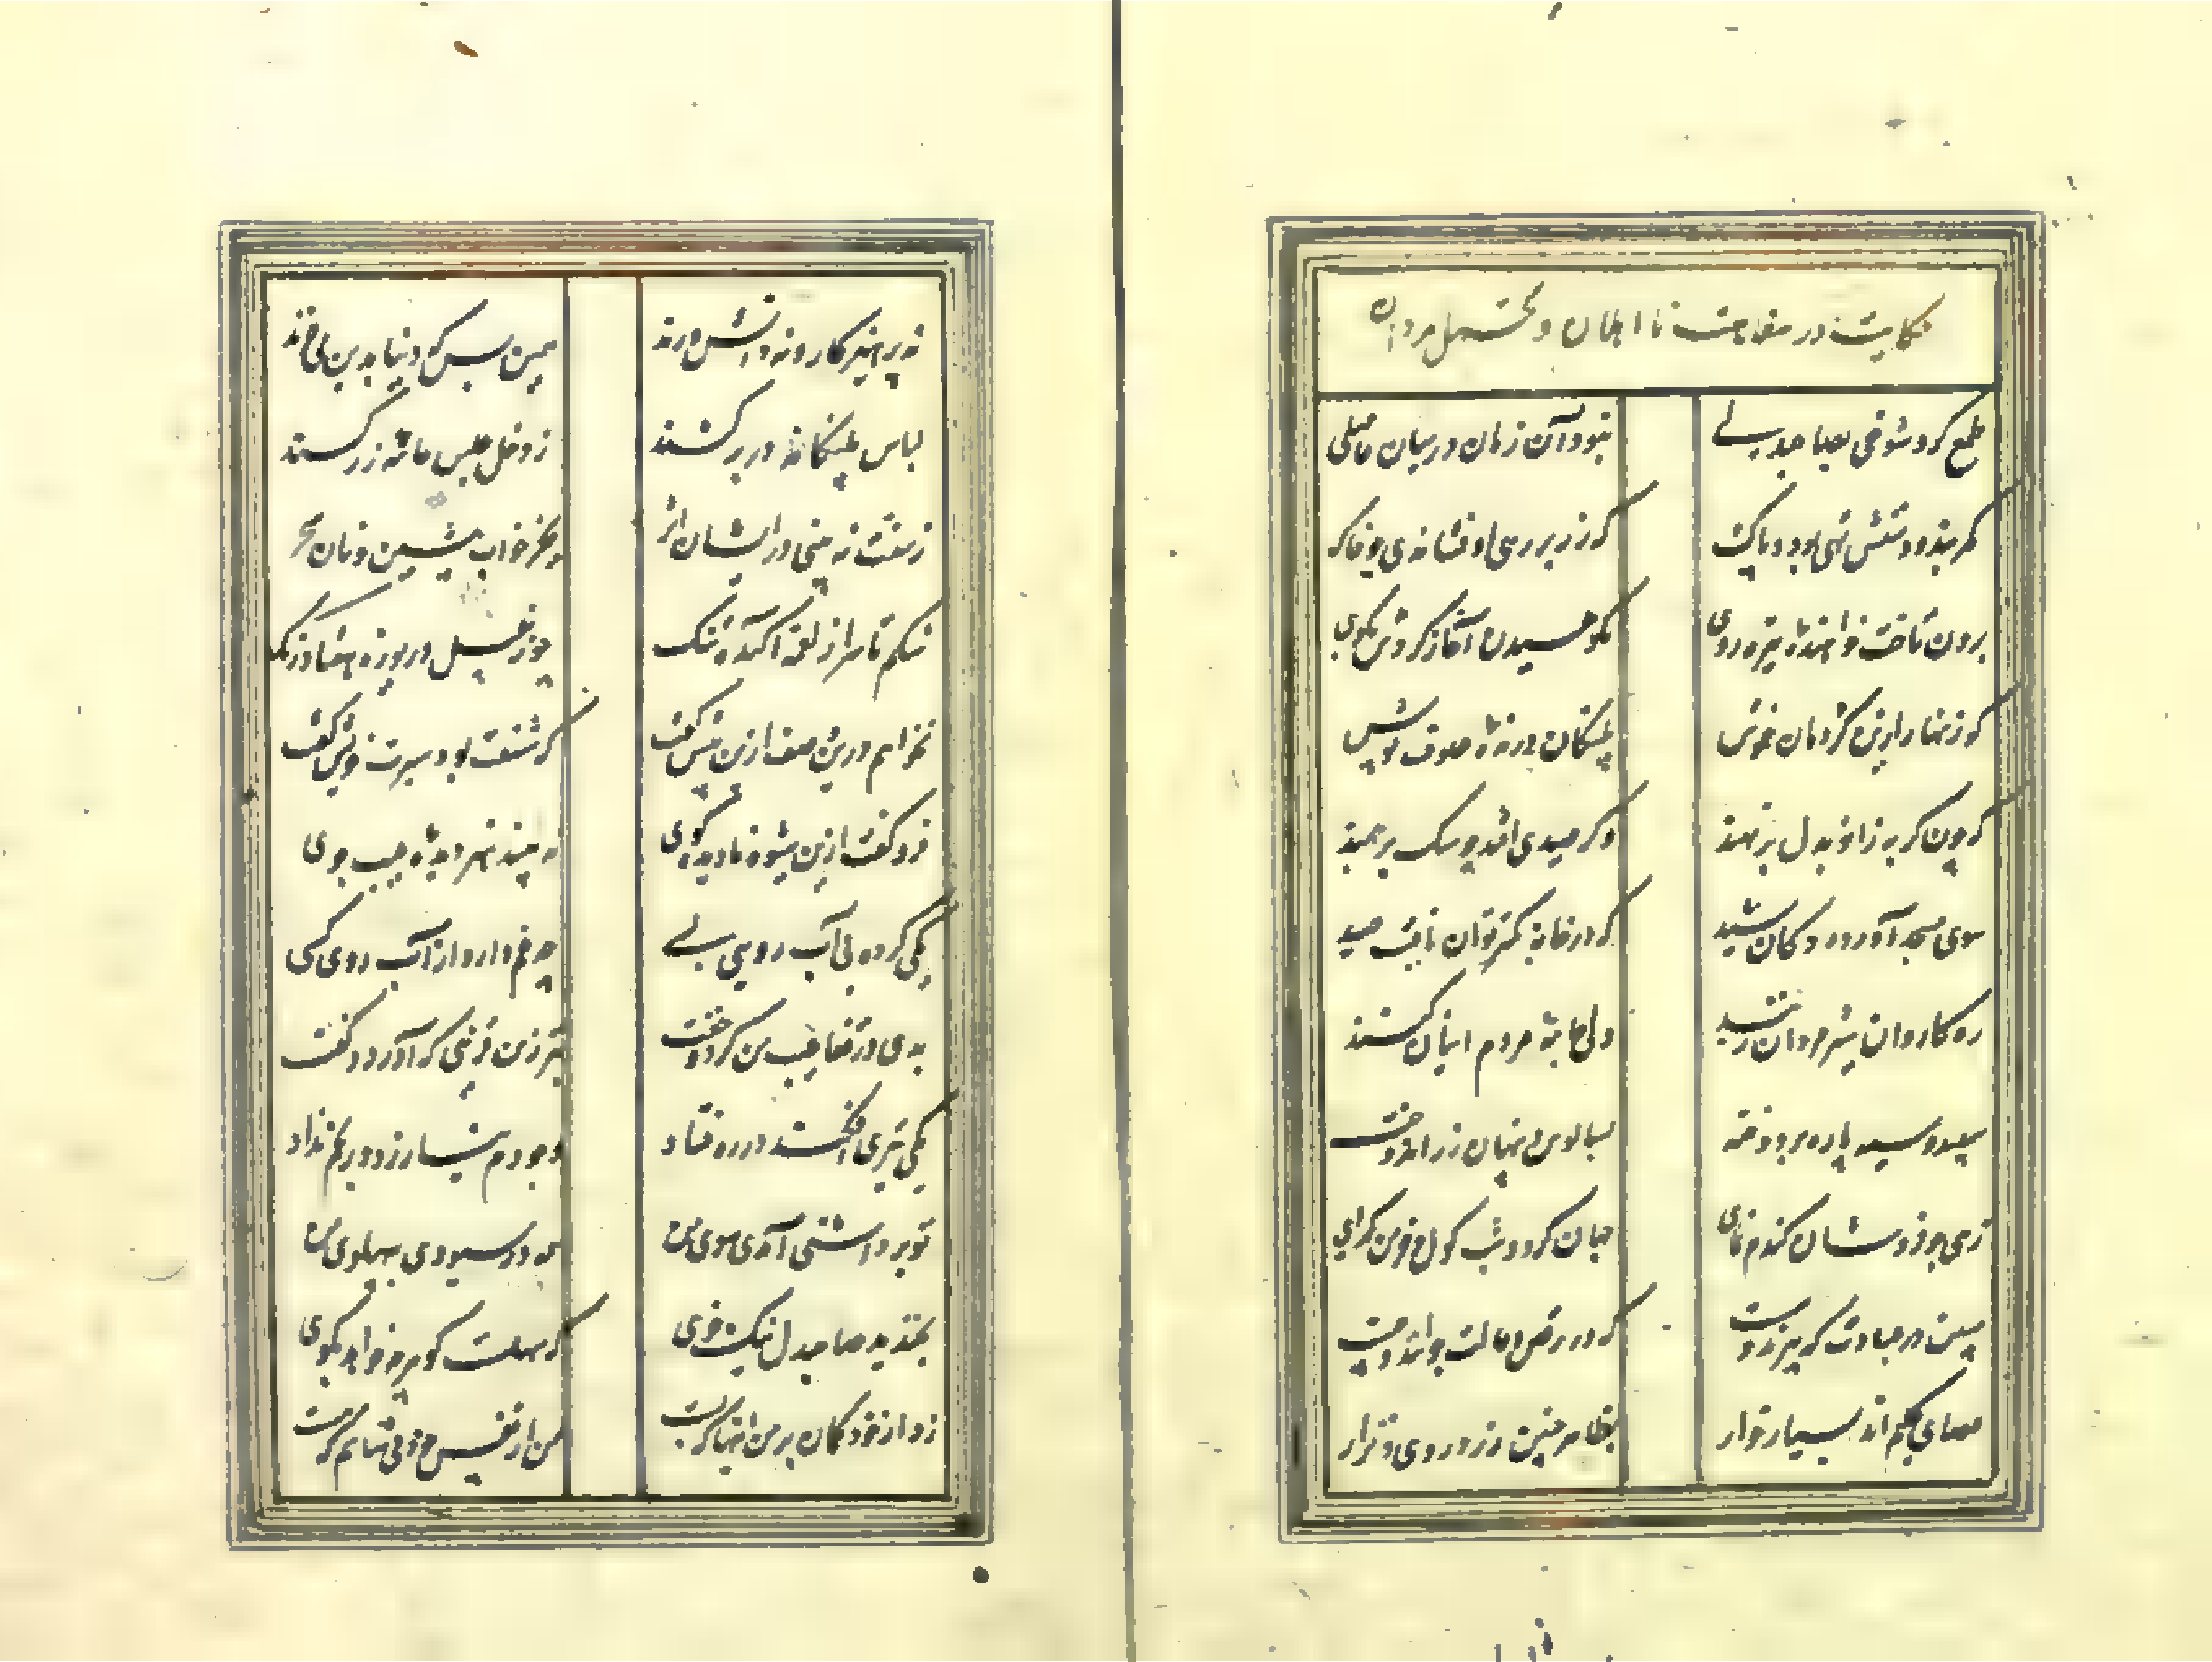 حکایت در سفاهت نا اهلان و تحمل مردان
طمع کرد شوخی بصاحبدلی نبود آن زمان در میان حاصلی
کمربند و دستش تهی بود و پاک که زر بر رهی افشاندی چو خاک
برون تاخت خواهنده تیره روی نکوهیدن آغاز کردش بکوی
که زنهار ازین کژدمان خموش پلنگان درنده صوف پوش
که چون گربه زانو بدل بر نهند وگر صیدی افتد چو سگ بر جهند
سوی مسجد آورده دکان شید که در خانه کمتر توان یافت صید
ره کاروان شیر مردان زنند ولی جامه مردم اینان کنند
سپید و سیه پاره بر دوخته بسالوس و پنهان زر اندوخته
زهی جو فروشان گندم نمای جهان گرد و شب کول خرمن گدای
مبین در عبادت که پیرند و سست که در رقص و حالت جوانند و چست
عصای کلیم اند بسیار خوار بظاهر چنین زرد روی و نزار
نه پرهیزکار و نه دانش ورند همین بس که دنیا بدین می خرند
لباس پلنگانه در بر کنند ز دخل حبش جامه زر کنند
ز سنت نه بینی در ایشان اثر مگر خواب پیشین و نان سحر
شکم تا سر از لقمه آکنده تنگ چو زنبیل دریوزه هفتاد رنگ
نخواهم درین وصف ازین بیش گفت که شنعت بود سیرت خویش گفت
فرو گفت ازین شیوه نادیده گوی نه بیند هنر دیده عیب جوی
یکی کرده بی آب رویی بسی چه غم دارد از آب روی کسی
بدی در قفا عیب من کرد و خفت بتر زو قرینی که آورد و گفت
یکی تیری افکند و در ره فتاد وجودم نیازرد و رنجم نداد
تو برداشتی آمدی سوی من همی در سپوزی بپهلوی من
بخندید صاحبدل نیک خوی که سهلست گو هر چه خواهد بگوی
ز دار خود گمان بر من اینها که بست من از نفس خود می شناسم که هست